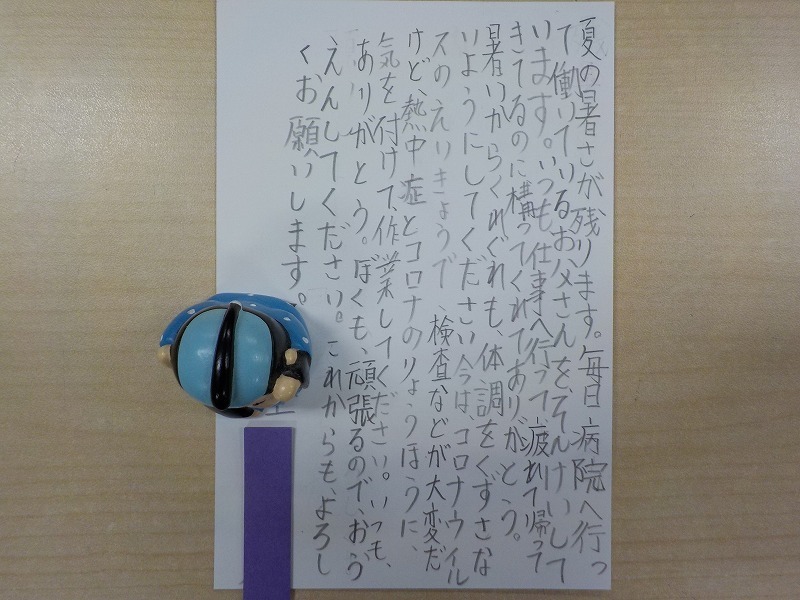 夏の暑さが残ります。毎日、病院へ行っ
て働いているお父さんを、そんけいして
います。いつも仕事へ行って疲れて帰って
きてるのに構ってくれてありがとう。
暑いからくれぐれも、体調をくずさな
いようにしてください今は、コロナウイル
スのえいきょうで、検査などが大変だ
けど、熱中症とコロナのりょうほうに、
気を付けて、作業してください。いつも、
ありがとう。ぼくも、頑張るので、おう
えんしてください。これからも、よろし
くお願いします。